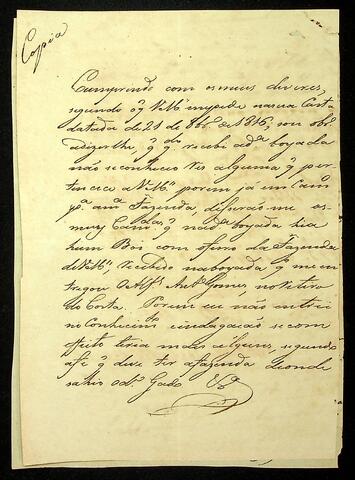 Copia
Cumprindo com os meus deveres,
segundo o q̃ V.M.ce me pede na sua Carta
datada de 21 de 8br.o de 1816; sou obr.
a dizer lhe, q̃ q.do recebi a d.a boyada
não se conheceo Res alguma q̃ per
tencece a V.M.ce porem já em Cam
p.a a m.a Fazenda diserão-me os
meus Cam.das q̃ na d.a boyada hia
hum Boi com o ferro da Fazenda
de V.M.ce, recebido na boyada q̃ me en
tregou o Alf.s Ant.o Gomes, no Retiro
do Costa. Porem eu não entrei
no Conhecim.to e indagação se com
effeito teria mais alguns, segundo
a fé q̃ disse ter a fazenda donde
sahio o d.o Gado